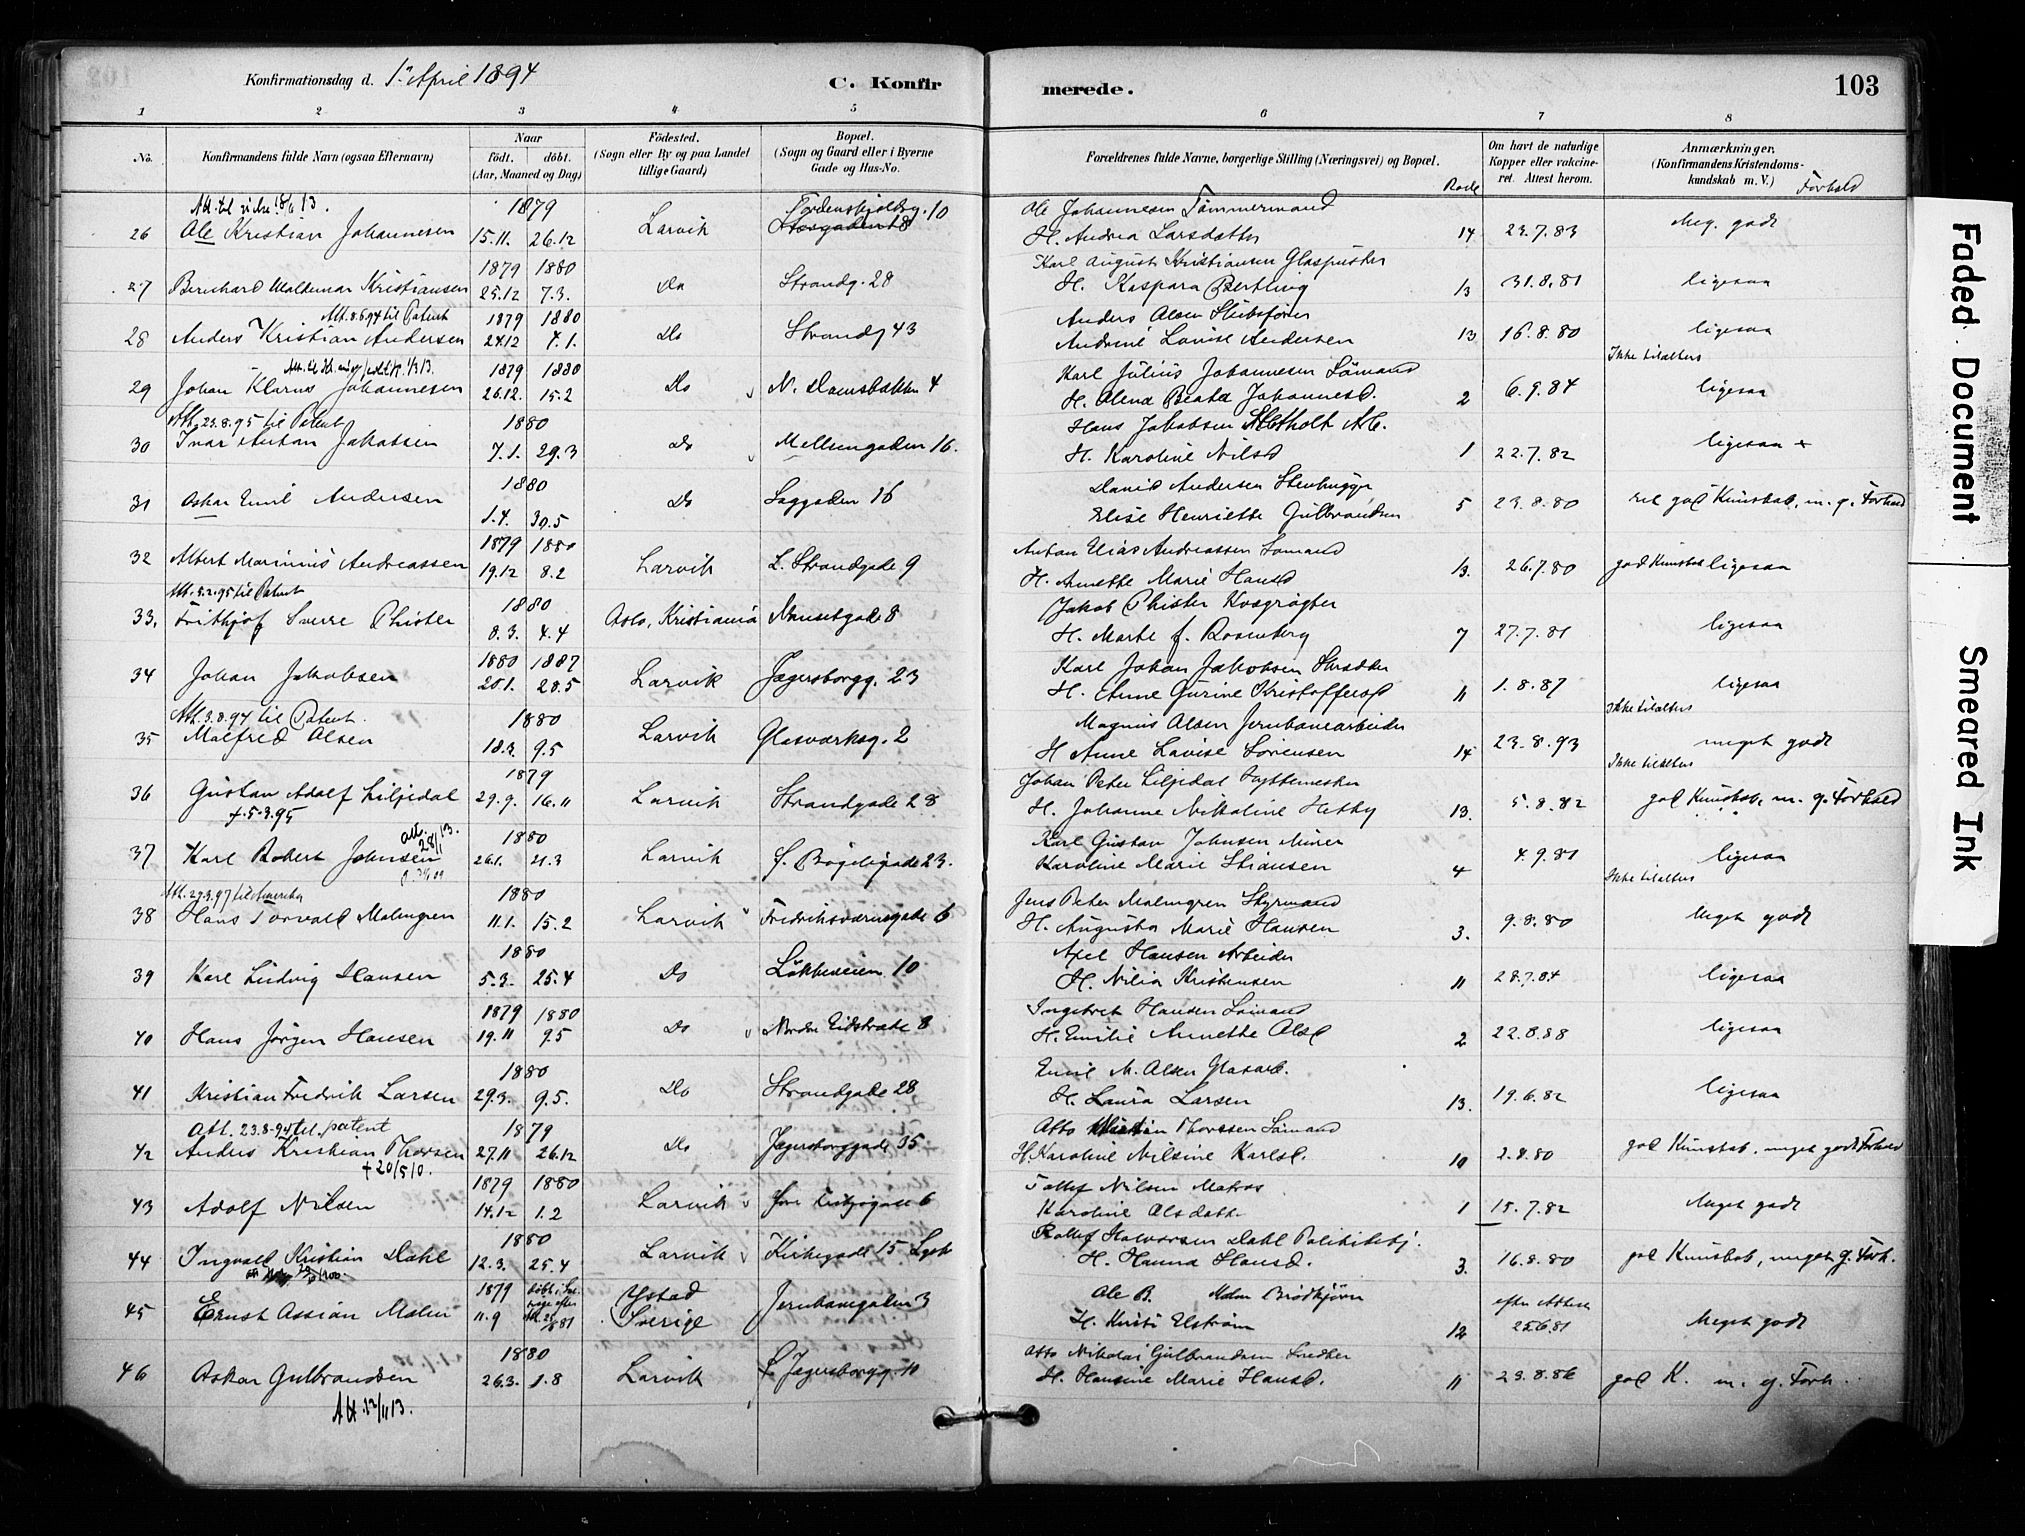 Konfirmationsdag d. 1ste April 1894
C. Konfirmerede.
103
1 2 3 4 5 6 7 8
No.
Konfirmandens fulde Navn (ogsaa Efternavn)
Naar
født. døbt.
(Aar, Maaned og Dag)
Fødested.
(Sogn eller By og paa Landet
tillige Gaard)
Bopæl.
(Sogn og Gaard eller i Byerne
Gade og Hus-No.
Forældrenes fulde Navne, borgerlige Stilling (Næringsvei) og Bopæl.
Rode
Om havt de naturlige
Kopper eller vakcine-
ret. Attest herom.
Anmærkninger.
(Konfirmandens Kristendoms-
kundskab m. V.) Forhold
1879 Tordenskjoldsg. 10 Ole Johannesen Tømmermand Meg. godt
26 Ole Kristian Johannesen 15.11. 26.12 Larvik H. Andrea Larsdatter 14 23.7.83
1879 1880 Karl August Kristiansen Glaspuster
27 Bernhard Waldemar Kristiansen 25.12 7.3. Do Strandg. 28 H. Kaspara Bertling 13 31.8.81 ligesaa
Att. 8.6.94 til Patent 1879 1880 Anders Olsen
28 Anders Kristian Andersen 24.12 4.1. Do Strandg 43 Andrine Lovise Andersen 13 16.8.80 ligesaa
Ikke tilalters
1879 1880 Karl Julius Johannesen Sömand
29 Johan Klarus Johannesen 26.12. 15.2 Do N. Damsbakken 4 H. Olena Beata Johannesd. 2 6.9.84 ligesaa
Att. 23.8.95 til Patent 1880 Hans Jakobsen
30 Ivar Anton Jakobsen 7.1. 29.3 Do Mellemgaden 16. H. Karoline Nilsd 1 22.7.82 ligesaa
1880 David Andersen Stenhugger
31 Oskar Emil Andersen 1.4. 30.5 Do Saggaden 16 Elise Henriette Gulbrandsen 5 23.8.80 god Kundskab, m. g. Forhold
1879 1880 Anton Elias Andreassen Sömand
32 Albert Marinius Andreassen 19.12 8.2 Larvik L. Strandgade 9 H. Annette Marie Hansd 13. 26.7.80 god Kundskab ligesaa
Att. 8.2.95 til Patent 1880 Jakob Phister
33. Frithjof Sverre Phister 8.3. 4.4 Oslo, Kristiania Nansetgade 8 H. Marte f. Rosenberg 7 27.7.81 ligesaa
1880 1887 Karl Johan Jakobsen Skrædder
34 Johan Jakobsen 20.1. 28.5 Larvik Jegersborgg. 23 H. Anne Gurine Kristoffersd 11 1.8.87 ligesaa
Ikke tilalters
Att. 3.8.94 til Patent. 1880 Magnus Olsen Jernbanearbeider
35 Malfred Olsen 18.3. 9.5 Larvik Glasværksg. 2 H Anne Lovise Sörensen 14 23.8.93 meget godt
Ikke tilalters
1879 Johan Peter Liljedal Hyttemester
36 Gustav Adolf Liljedal 29.9. 16.11 Larvik Strandgade 28 H. Johanne Nikoline Hetty 13. 5.8.82 god Kundskab, m. g. Forhold
+ 5-3.95
att. 28/1 13. 1880 Karl Gustav Johnsen Murer
37 Karl Robert Johnsen 26.1. 21.3 Larvik f. Bögeligade 23. Karoline Marie Stiansen 4 4.9.81 ligesaa
Ikke tilalters
Att. 29.3.97 til Amerika 1880 Jens Peter Malmgren Styrmand
38 Hans Torvald Malmgren 11.1. 15.2 Larvik Fredriksværnsgade 6 H. Augusta Marie Hansen 3. 9.8.80 Meget godt
1880 Axel Hansen Arbeider
39 Karl Ludvig Hansen 5.3. 25.4 Do Løkkeveien 10 H. Nilia Kristensen 11 28.7.84 ligesaa
1879 1880 Ingebret Hansen Sömand
40 Hans Jørgen Hansen 19.11 9.5 Do Nordre Eidstræde 8 H. Emilie Annette Olsd 2 22.8.88 ligesaa
1880 Emil M. Olsen Glasarb.
41 Kristian Fredrik Larsen 29.3. 9.5. Do Strandgade 28 H. Laura Larsen 13. 19.6.82 ligesaa
Att. 23.8-94 til patent 1879 Otto Thorssen Sömand
42 Anders Kristian Thorsen 27.11 26.12 Do Jegersborggade 35 H. Karoline Nilsine Karlsd. 10 2.8.80 god Kundskab, meget godt Forhold
+ 20/5 10.
1879 1880 Tollef Nilsen Matros
43 Adolf Nilsen 14.12 1.2 Larvik 6 Karoline Olsdatter 1 15.7.82 Meget godt
1880 Rollef Halvorsen Dahl Politibetj.
44 Ingvald Kristian Dahl 12.3. 25.4 Larvik Kirkegade 15 H. Hanna Hansd. 3. 16.8.80 god Kundskab, meget g. Forh.
1879 døbt i Sve-
rige efter
Ystad Ole B. Malm Brödkjörer efter Attest
45 Ernst Ossian Malm 11.9 Sverige Jernbanegaden 3 H. Kirsti Elström 12 25.6.81 Meget godt
1880 Otto Nikolai Gulbrandsen Snedker
46 Oskar Gulbrandsen 26.3. 1.8 Larvik Jegersborgg. 11 H. Hansine Marie Hansd. 11 23.8.86 god K. m. g. Forh.
Att. 12/11 13.
Faded Document
Smeared Ink